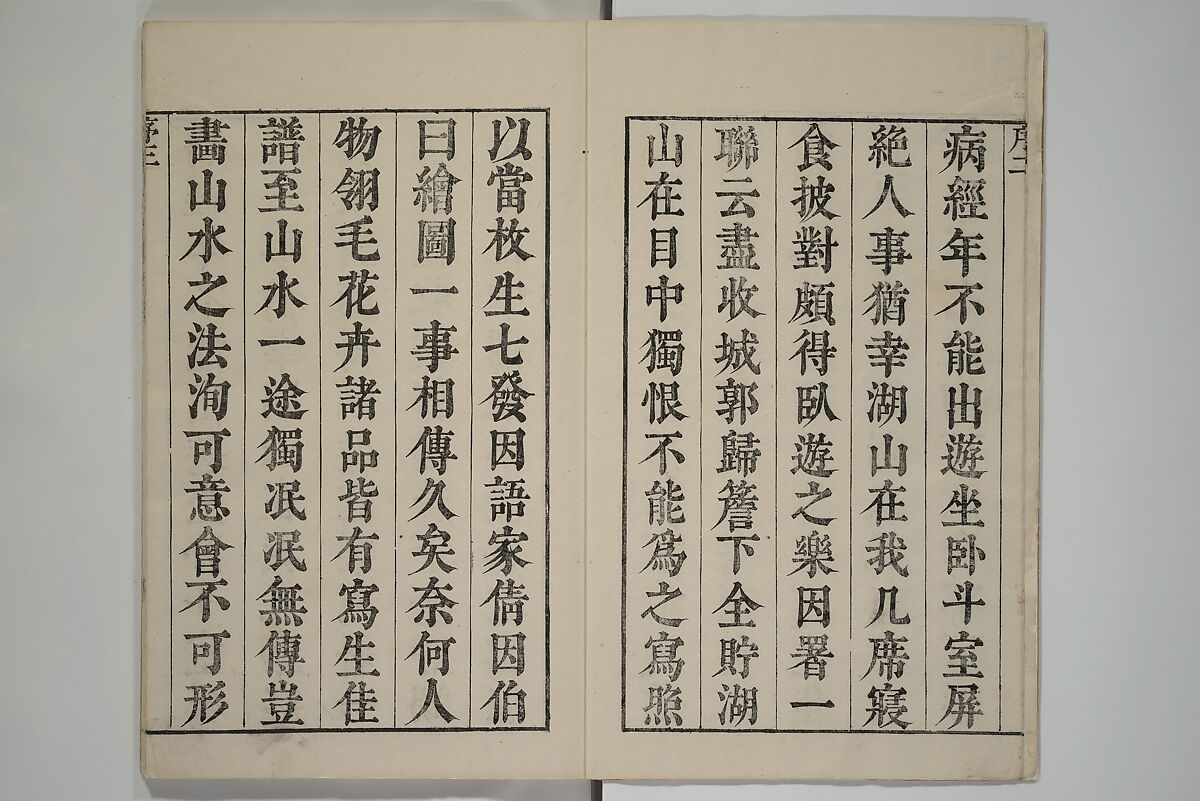 序二
病經年不能出遊坐卧斗室屏
絶人事猶幸湖山在我几席寢
食披對頗得臥遊之樂因署一
聯云盡收城郭歸簷下全貯湖
山在目中獨恨不能爲之寫照
以當枚生七發因語家倩因伯
曰繪圖一事相傳久矣奈何人
物翎毛花卉諸品皆有寫生佳
譜至山水一途獨泯泯無傳豈
畫山水之法洵可意會不可形
序三